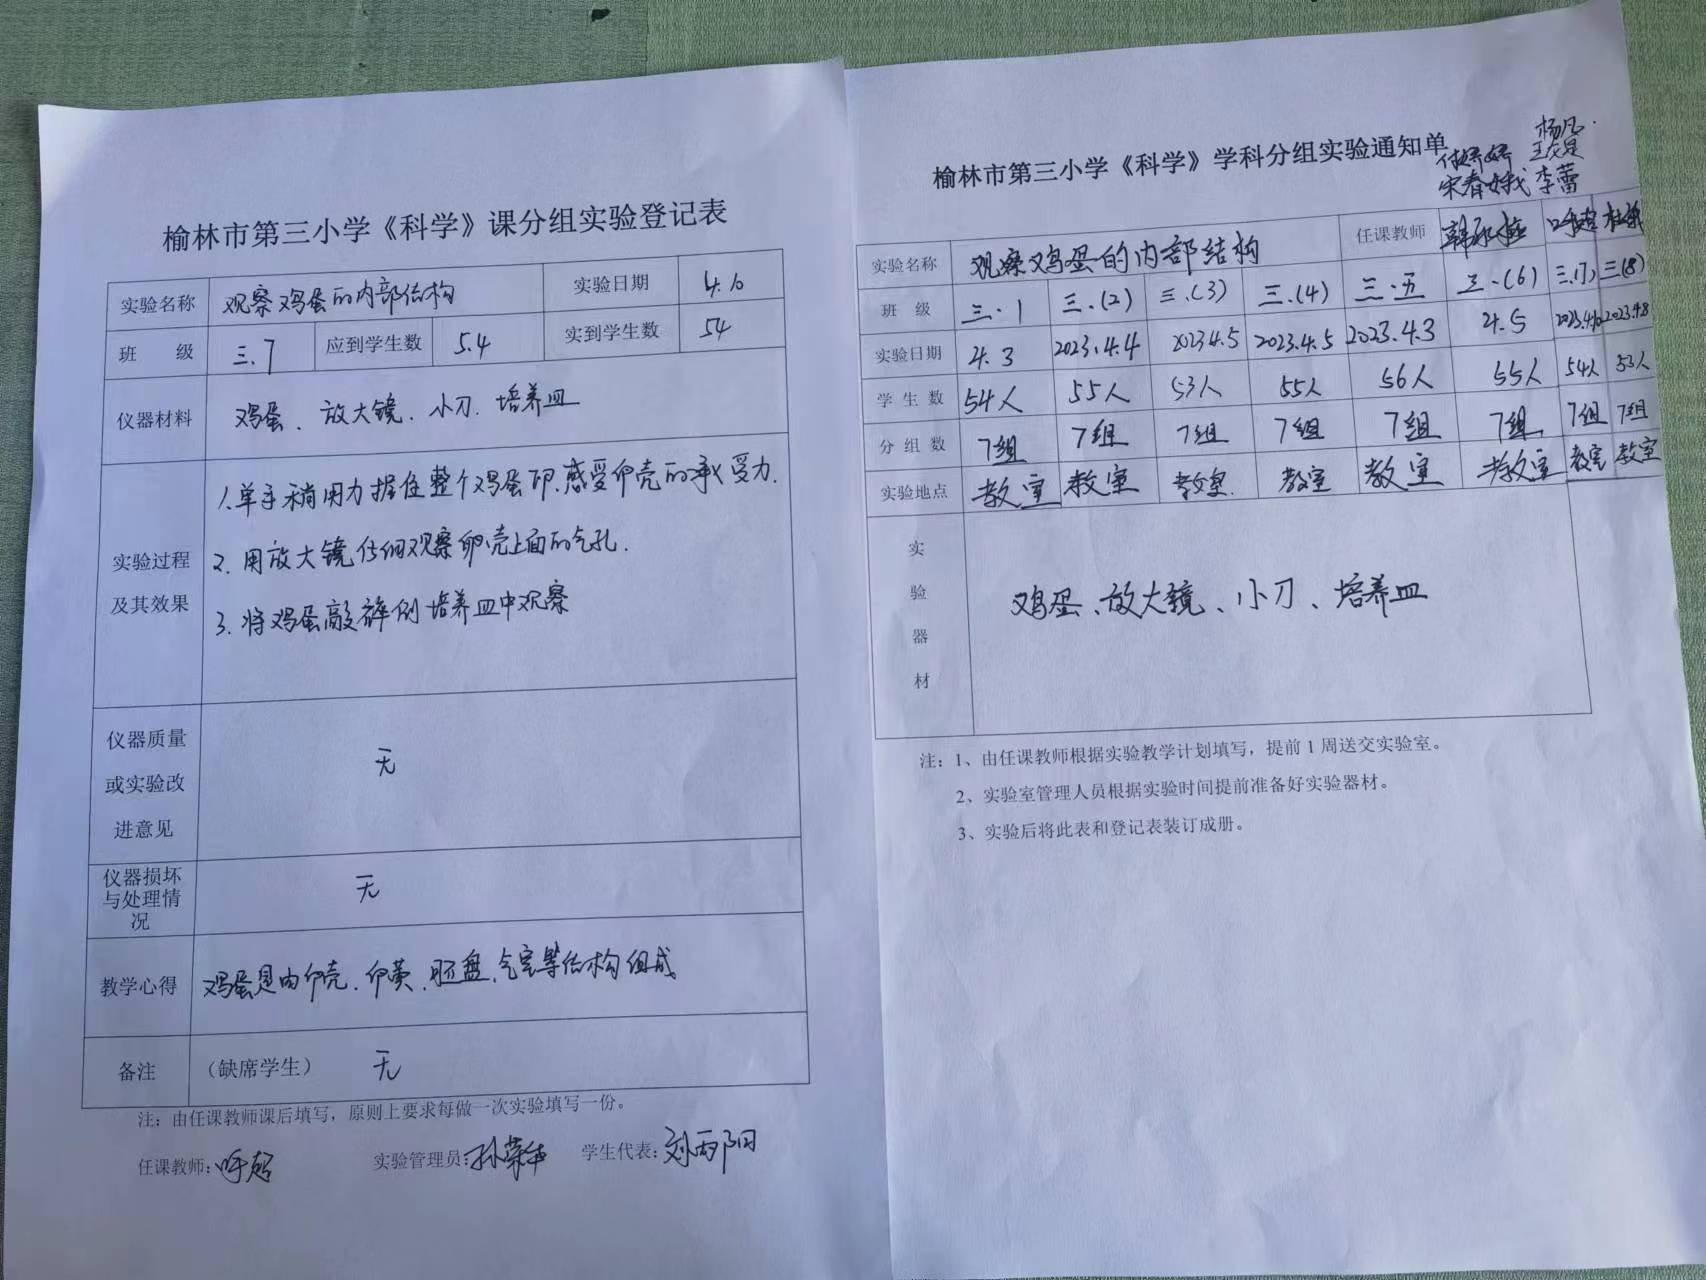 榆林市第三小学《科学》课分组实验登记表
实验名称 观察鸡蛋的内部结构 实验日期 4.10
班 级 三.7 应到学生数 54 实到学生数 54
仪器材料 鸡蛋、放大镜、小刀、培养皿
实验过程及其效果
1.单手稍用力握住整个鸡蛋即感受卵壳的承受力.
2.用放大镜仔细观察卵壳上面的气孔.
3.将鸡蛋敲碎倒培养皿中观察
仪器质量或实验改进意见 无
仪器损坏与处理情况 无
教学心得 鸡蛋是由卵壳、卵黄、胚盘、气室等结构组成
备注 (缺席学生) 无
注:由任课教师课后填写,原则上要求每做一次实验填写一份。
任课教师:呼超 实验管理员: 学生代表:
榆林市第三小学《科学》学科分组实验通知单
杨凡
宋春娥 李蕾
实验名称 观察鸡蛋的内部结构 任课教师 呼超
班 级 三.1 三.(2) 三.(3) 三.(4) 三.五 三.(6) 三.(7) 三(8)
实验日期 4.3 2023.4.4 2023.4.5 2023.4.5 2023.4.3 4.5 2023.4.10 2023.4.8
学生数 54人 55人 53人 55人 56人 55人 54人 53人
分组数 7组 7组 7组 7组 7组 7组 7组 7组
实验地点 教室 教室 教室 教室 教室 教室 教室 教室
实验器材 鸡蛋、放大镜、小刀、培养皿
注:1、由任课教师根据实验教学计划填写,提前1周送交实验室。
2、实验室管理人员根据实验时间提前准备好实验器材。
3、实验后将此表和登记表装订成册。